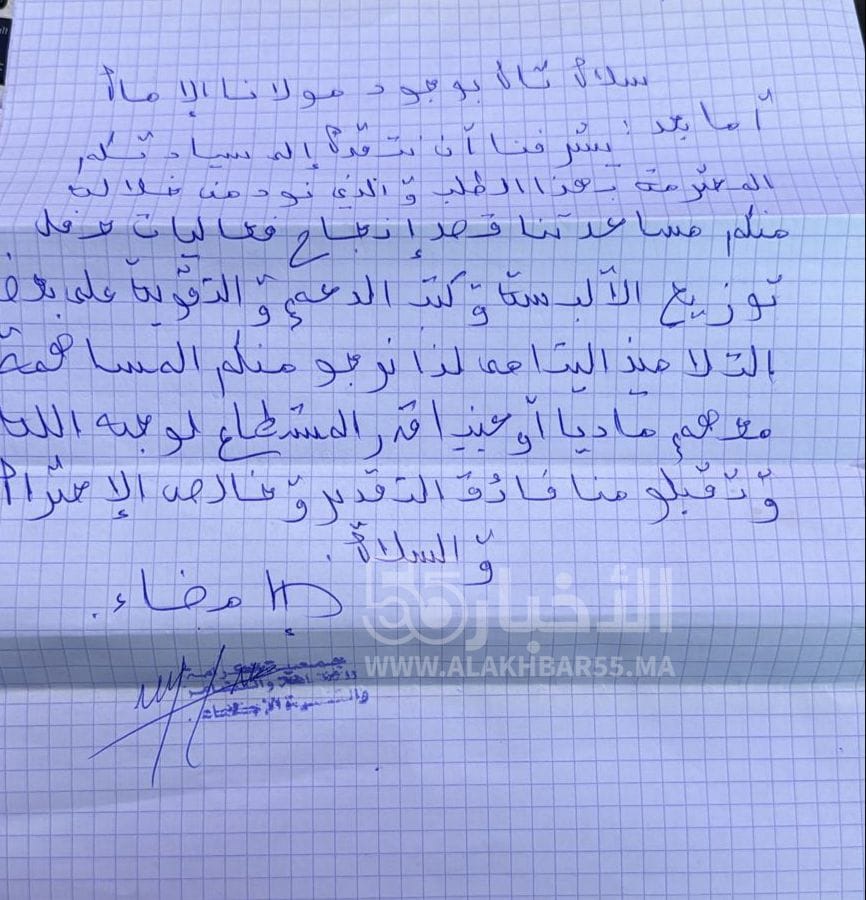 سلام تام بوجود مولانا الإمام
أما بعد: يشرفنا أن نتقدم إلى سيادتكم
المحترمة بهذا الطلب والذي نود من خلاله
منكم مساعدتنا قصد إنجاح فعاليات حفل
توزيع الألبسة وكتب الدعم والتقوية على بعض
التلاميذ اليتامى لذا نرجو منكم المساهمة
معهم ماديا أو عينيا قدر المستطاع لوجه الله
وتقبلو منا فائق التقدير وخالص الإحترام
والسلام.
إمضاء.
الأخبار 55
WWW.ALAKHBAR55.MA